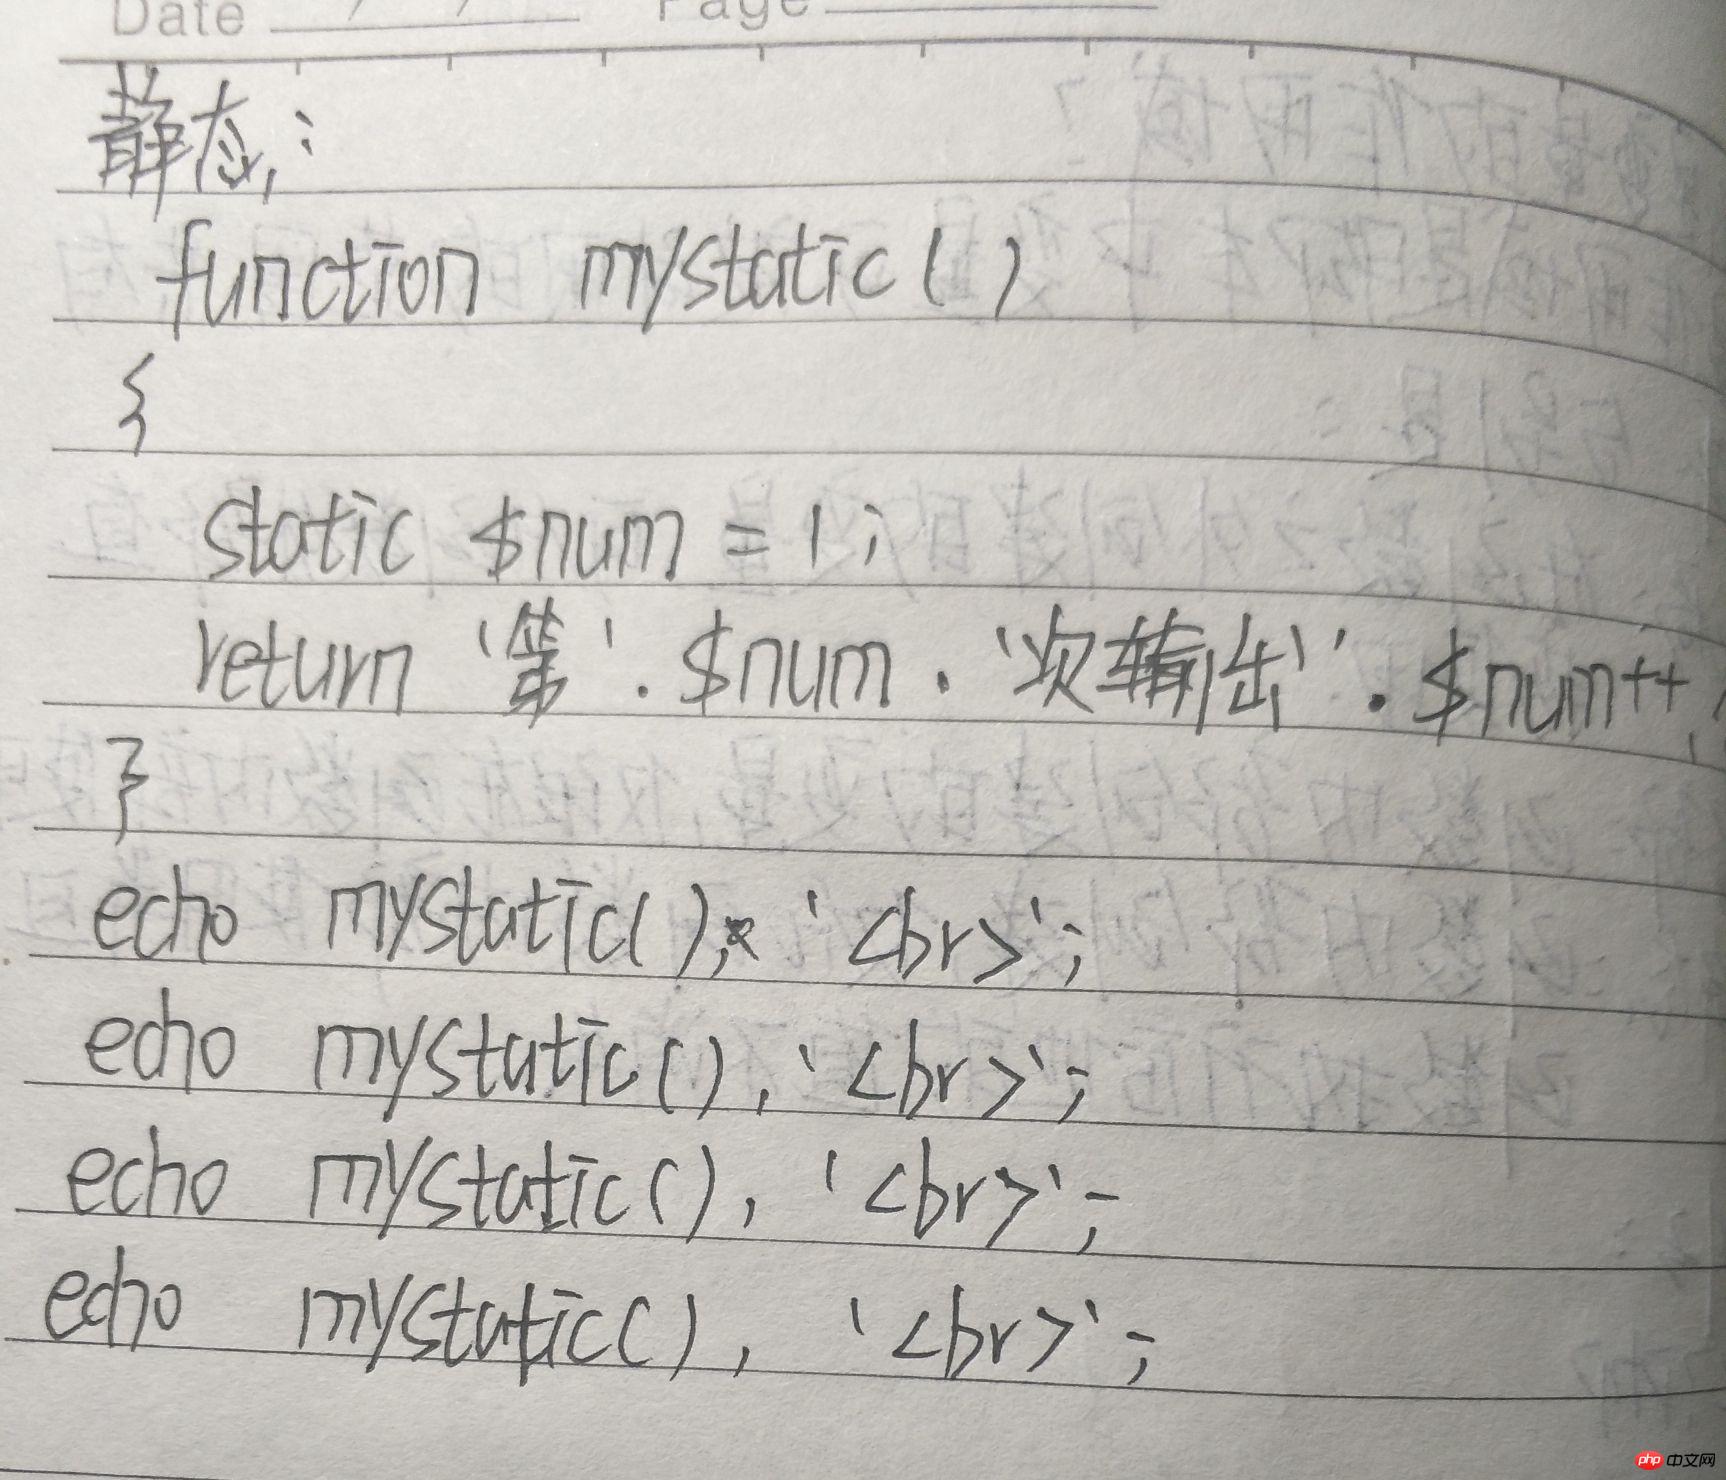 Date / / Page
静态:
function mystatic()
{
static $num = 1;
return '第'.$num.'次输出'.$num++;
}
echo mystatic(), '<br>';
echo mystatic(), '<br>';
echo mystatic(), '<br>';
echo mystatic(), '<br>';
php 中文网